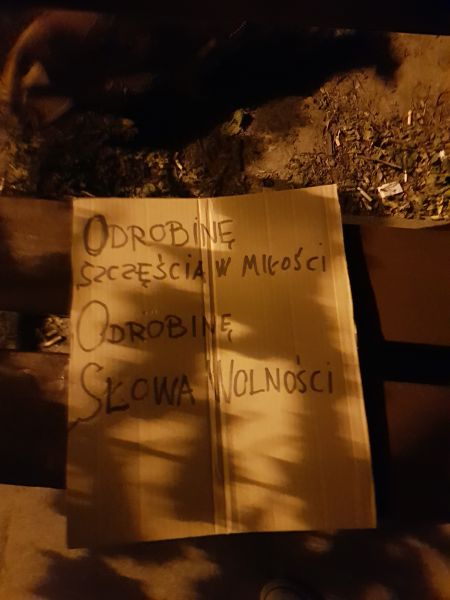 ODROBINĘ
SZCZĘŚCIA W MIŁOŚCI
ODROBINĘ
SŁOWA WOLNOŚCI